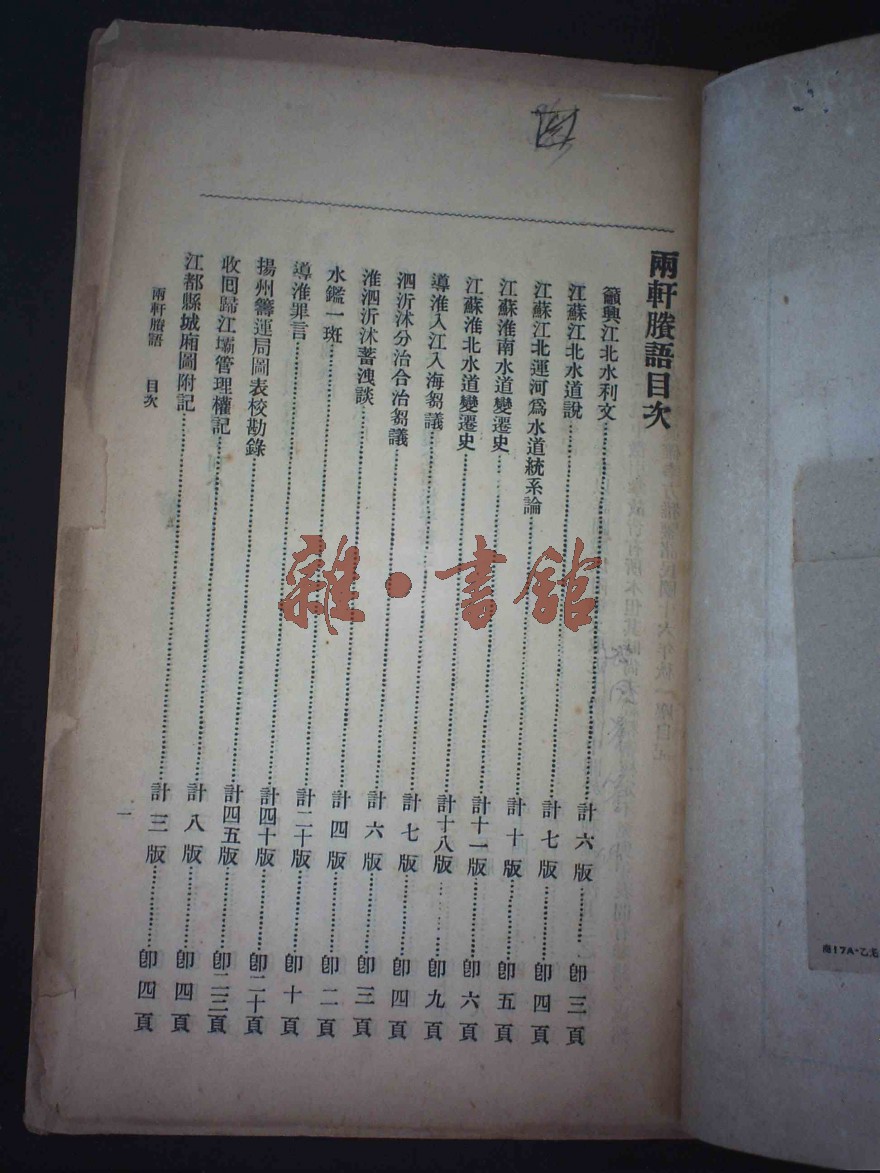 兩軒賸語目次
籲興江北水利文……計六版……卽三頁
江蘇江北水道說……計七版……卽四頁
江蘇江北運河爲水道統系論……計十版……卽五頁
江蘇淮南水道變遷史……計十一版……卽六頁
江蘇淮北水道變遷史……計十八版……卽九頁
導淮入江入海芻議……計七版……卽四頁
泗沂沭分治合治芻議……計六版……卽三頁
淮泗沂沭蓄洩談……計四版……卽二頁
水鑑一斑……計二十版……卽十頁
導淮罪言……計四十版……卽二十頁
揚州籌運局圖表校勘錄……計四五版……卽二三頁
收囘歸江壩管理權記……計八版……卽四頁
江都縣城廂圖附記……計三版……卽四頁
兩軒賸語 目次
一
雜·書館